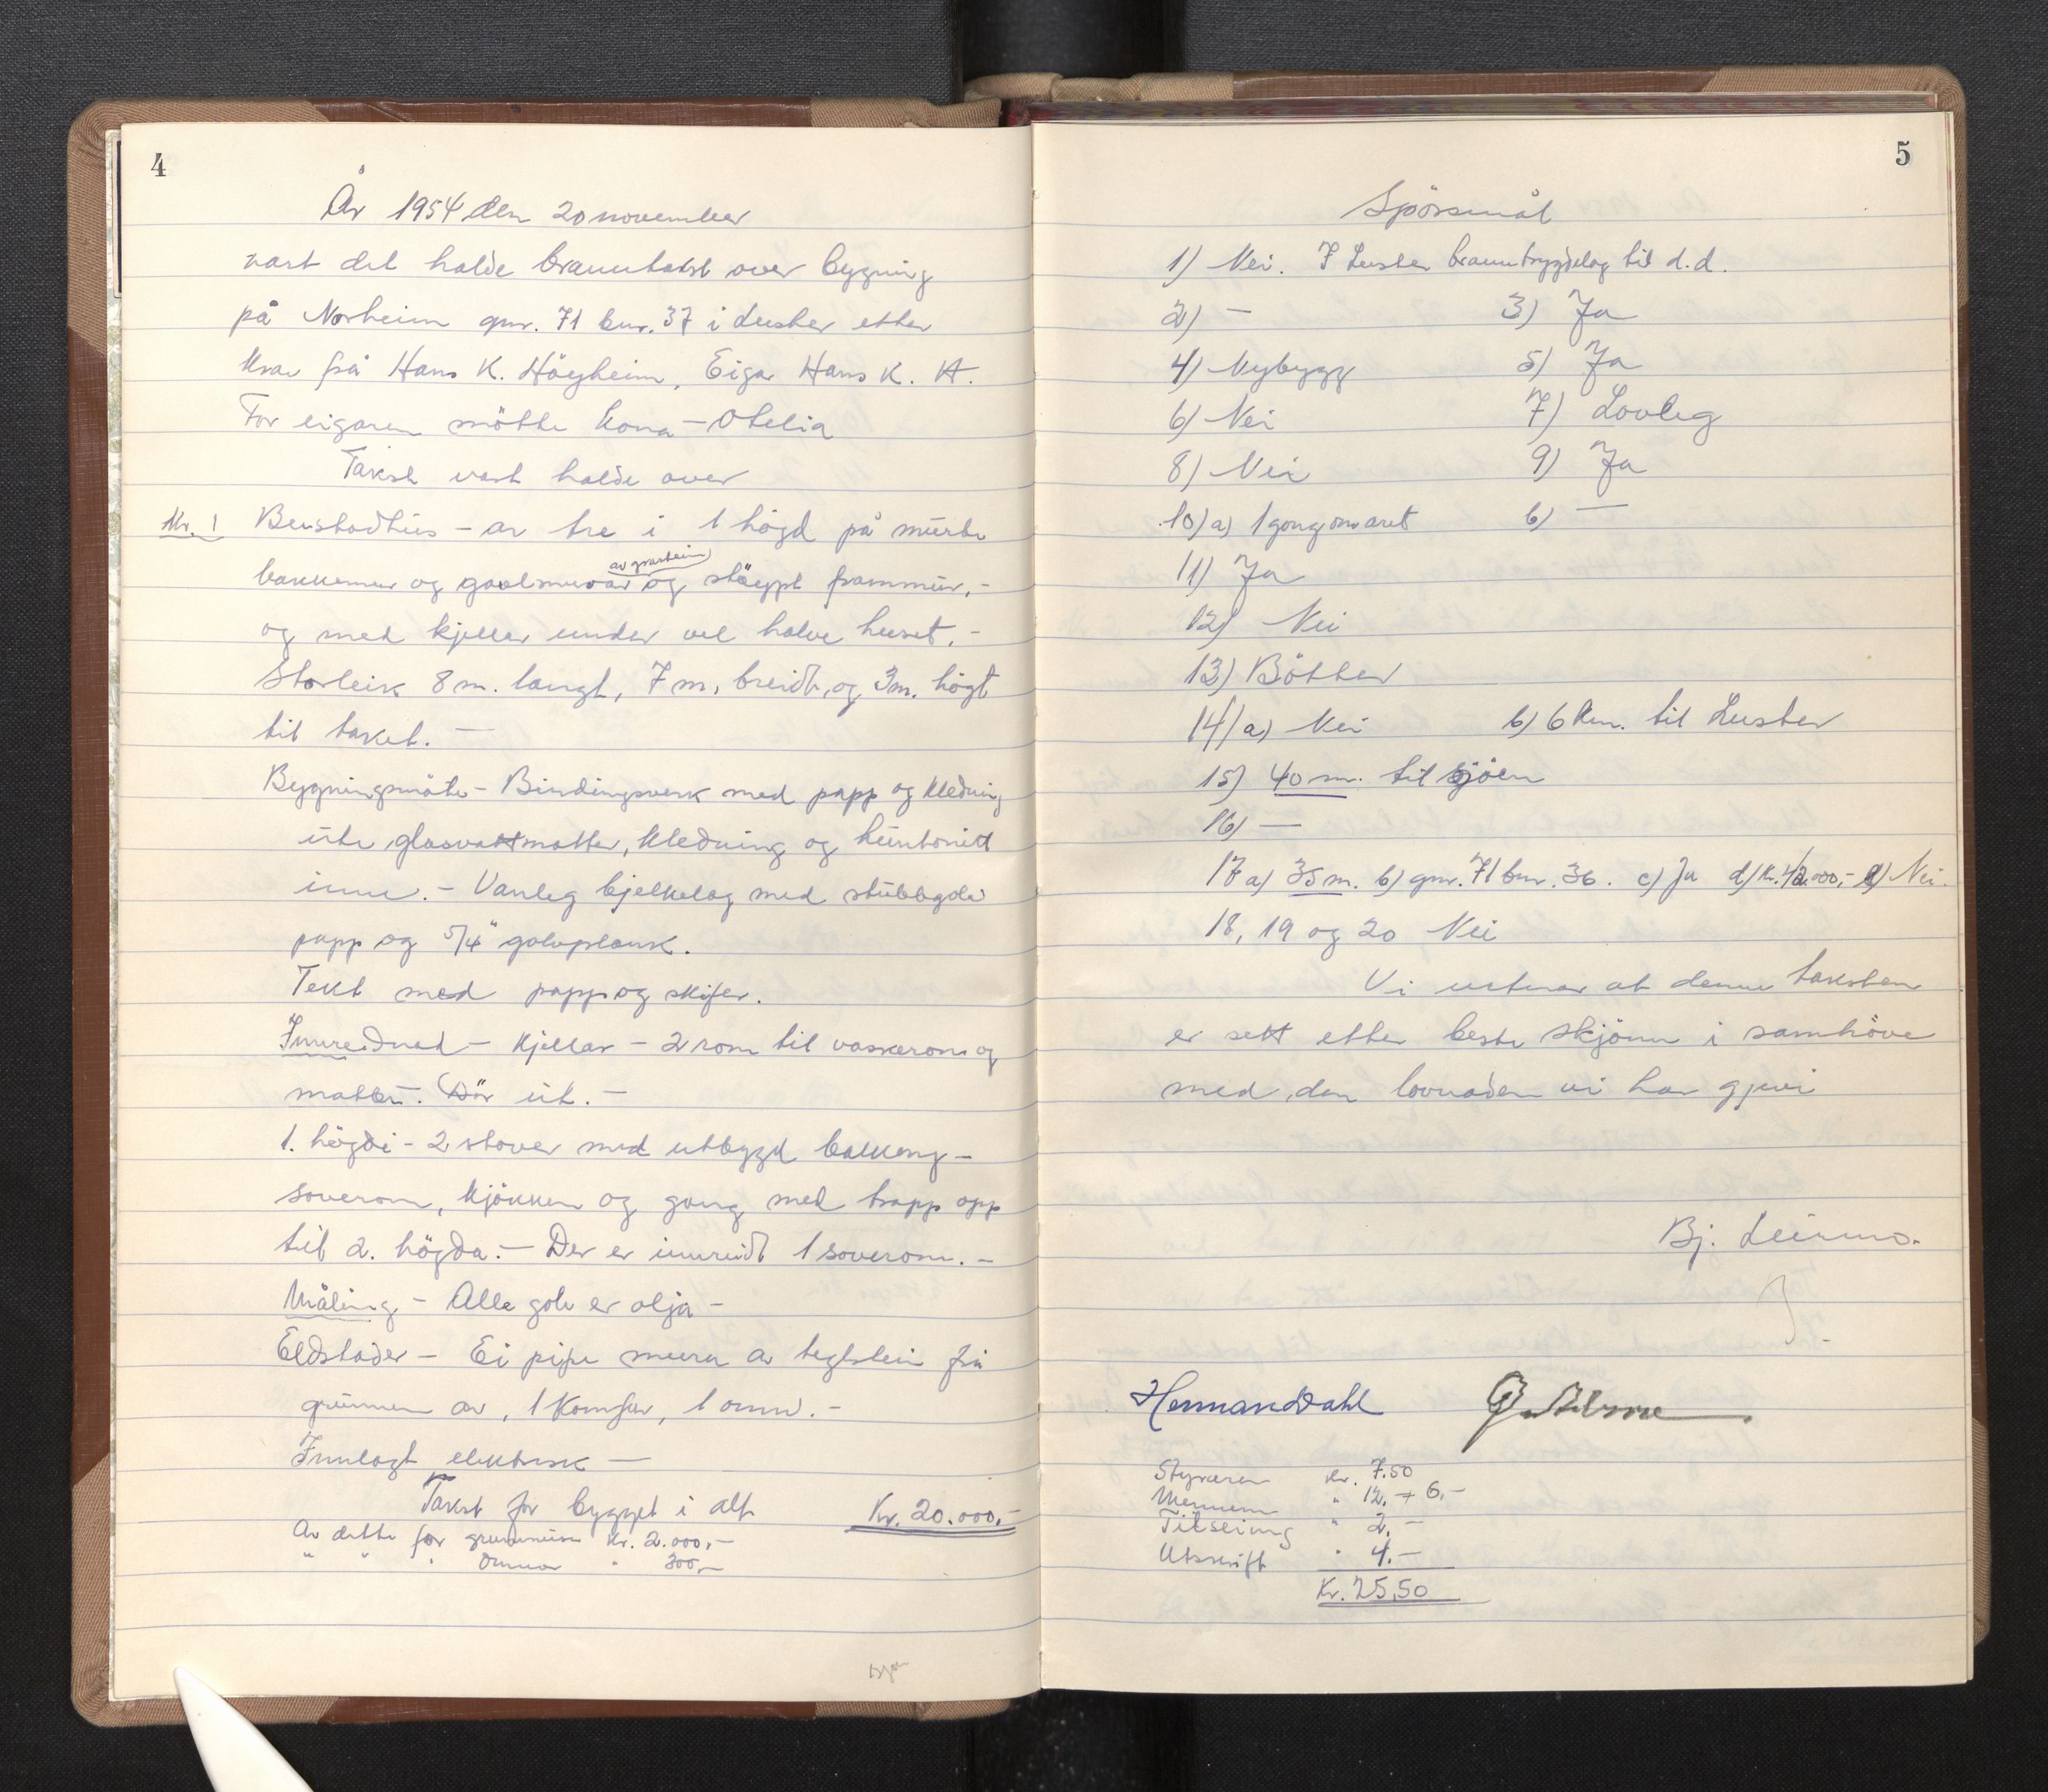 4
År 1954 den 20 november
vart det halde branntakst over bygning
på Norheim gnr. 71 bnr. 37 i Luster etter
krav frå Hans K. Høyheim, Eigar Hans K. H.
For eigaren møtte kona - Otelia
Takst vart halde over
Nr. 1 Bustadhus - av tre i 1 høgd på murte
av gråstein
bakkemur og gavlmurar og støypt frammur, -
og med kjellar under vel halve huset. -
Storleik 8 m. langt, 7 m. breidt, og 3 m. høgt
til taket. -
Bygningsmåte - Bindingsverk med papp og kledning
ute glasvattmatter, kledning og huntonitt
inne. - Vanleg bjelkelag med stubbgolv
papp og 5/4" golvplank.
Tekt med papp og skifer.
Innreidnad - Kjellar - 2 rom til vaskerom og
matbu. Dör ut. -
1. høgdi - 2 stover med utbygd
soverom, kjökken og gang med trapp opp
til 2. högda. - Der er innreidt 1 soverom. -
Måling - Alle golv er olja -
Eldstader - Ei pipe mura av teglstein frå
grunnen av, 1 komfur, 1 omn. -
Innlagt elektrisk -
Takst for bygget i alt Kr. 20.000,-
Av dette for grunnmur Kr. 2.000,-
" " " Omnar " 300,-
5
Spörsmål
1) Nei. I Luster branntrygdelag til d.d.
2) - 3) Ja
4) Nybygg 5) Ja
6) Nei 7) Lovleg
8) Nei 9) Ja
10) a) 1 gong om året b) -
11) Ja
12) Nei
13) Bötter
14) a) Nei b) 6 km. til Luster
15) 40 m. til sjöen
16) -
17 a) 35 m. b) gnr. 71 bnr. 36. c) Ja d) Kr. 42.000,- e) Nei.
18, 19 og 20 Nei
Vi vitnar at denne taksten
er sett etter beste skjönn i samhöve
med den lovnaden vi har gjevi
Bj. Leirmo.
Herman Dahl
Styraren Kr. 7.50
Mennene " 12.- + 6.-
Tilseiing " 2.-
Utskrift " 4.-
Kr. 25,50